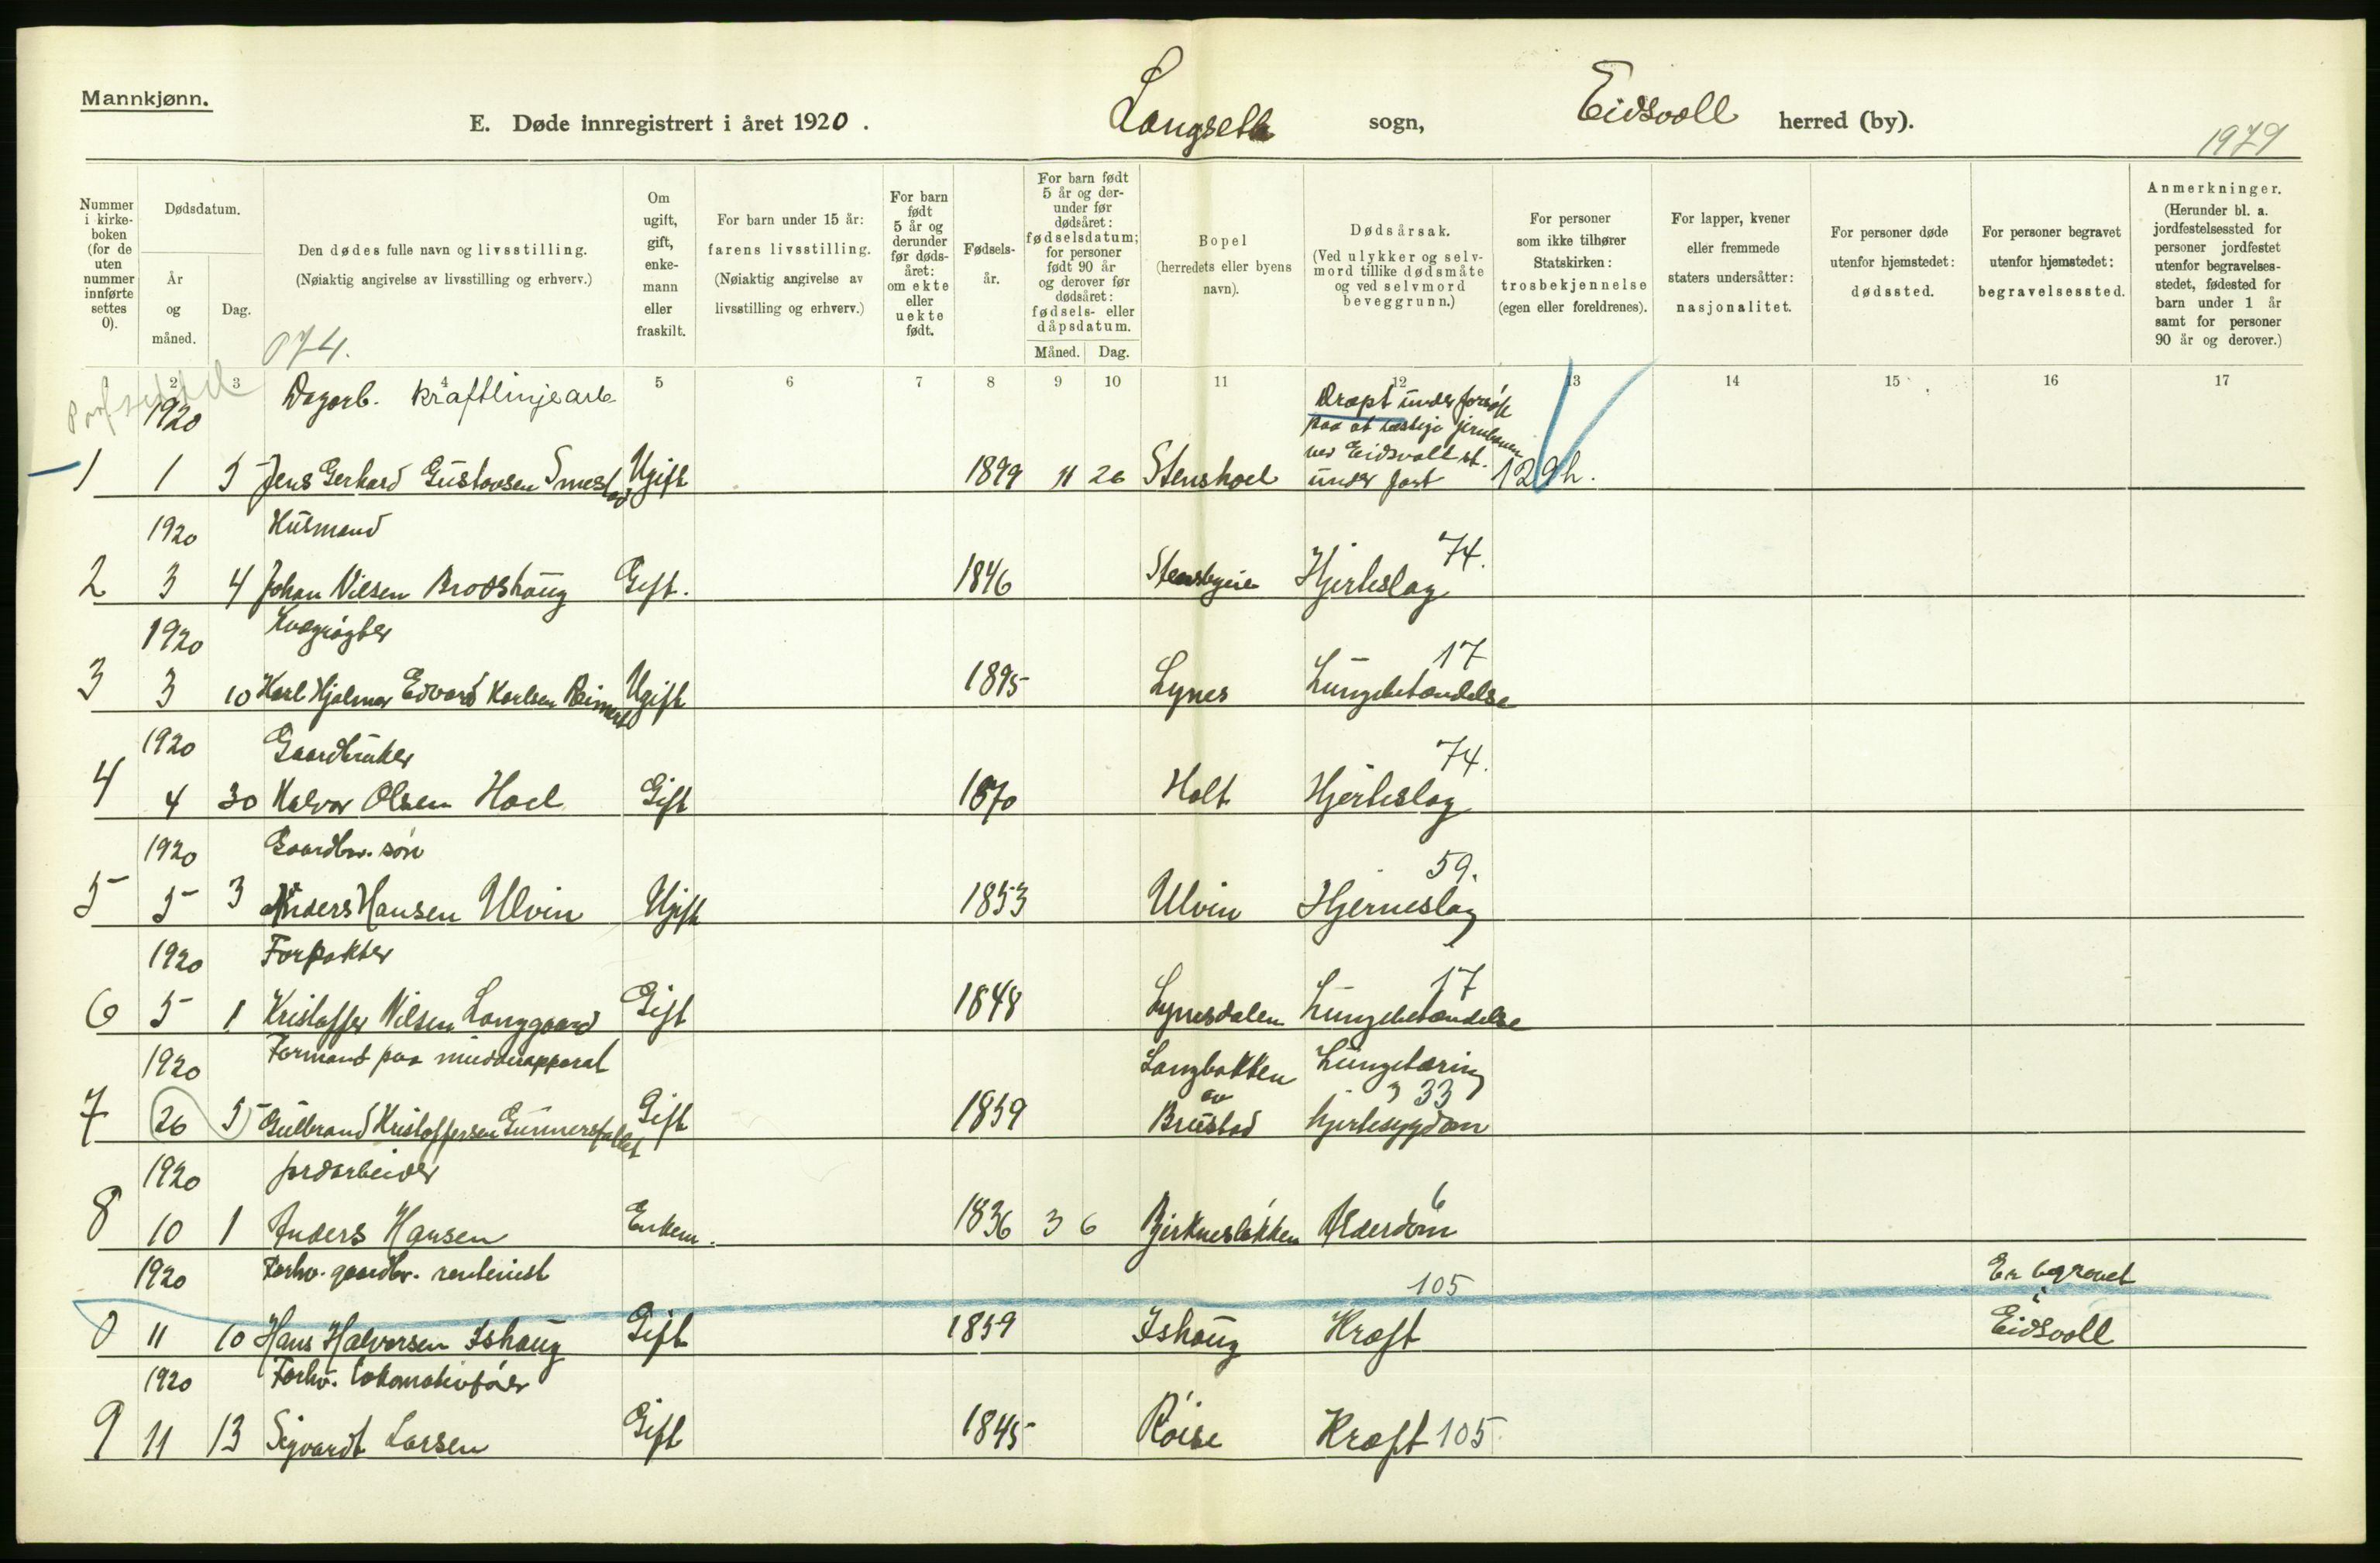 Mannkjønn.
E. Døde innregistrert i året 1920. Langseth sogn, Eidsvoll herred (by).
1979
Nummer i kirke-boken (for de uten nummer innførte settes 0).
Dødsdatum.
År og måned.
Dag.
Den dødes fulle navn og livsstilling.
(Nøiaktig angivelse av livsstilling og erhverv.)
074.
Om ugift, gift, enke-mann eller fraskilt.
For barn under 15 år:
farens livsstilling.
(Nøiaktig angivelse av livsstilling og erhverv.)
For barn født 5 år og derunder før døds-året: om ekte eller uekte født.
Fødsels-år.
For barn født 5 år og der-under før dødsåret: fødselsdatum; for personer født 90 år og derover før dødsåret: fødsels- eller dåpsdatum.
Måned. Dag.
Bopel
(herredets eller byens navn).
Dødsårsak.
(Ved ulykker og selv-mord tillike dødsmåte og ved selvmord beveggrunn.)
For personer som ikke tilhører Statskirken: trosbekjennelse (egen eller foreldrenes).
For lapper, kvener eller fremmede staters undersåtter: nasjonalitet.
For personer døde utenfor hjemstedet: dødssted.
For personer begravet utenfor hjemstedet: begravelsessted.
Anmerkninger.
(Herunder bl. a. jordfestelsessted for personer jordfestet utenfor begravelses-stedet, fødested for barn under 1 år samt for personer 90 år og derover.)
1 2 3 4 5 6 7 8 9 10 11 12 13 14 15 16 17
1920 Dagarb. Kraftlinjearb Dræpt under forsøk
paa at bestige jernbanen
ved Eidsvoll st.
1 1 5 Jens Gerhard Gustavsen Smestad Ugift 1899 11 26 Stenshoel under fart 129h.
1920 Husmand 74.
2 3 4 Johan Nilsen Brodshaug Gift. 1846 Stensbyeie Hjerteslag
1920 Kvægrøgter 17
3 3 10 Karl Hjalmar Edvard Karlsen Ugift 1895 Lynes Lungebetændelse
1920 Gaardbruker 74.
4 4 30 Halvor Olsen Hoel Gift 1870 Holt Hjerteslag
1920 Gaardbr. søn 59.
5 5 3 Anders Hansen Ulvin Ugift 1853 Ulvin Hjerneslag
1920 Forpakter 17
6 5 1 Kristoffer Nilsen Langgaard Gift 1848 Lynesdalen Lungebetændelse
1920 Formand paa mudderapparat Langbakken Lungetæring
av 33
7 26 5 Gulbrand Kristoffersen Gunnersfallet Gift 1859 Brustad hjertesygdom
1920 jordarbeider 6
8 10 1 Anders Hansen Enkem. 1836 3 6 Bjerknesløkken Alderdom
1920 Forhv. gaardbr. rentenist 105 Er begravet
i
0 11 10 Hans Halvorsen Ishaug Gift 1859 Ishaug Kræft Eidsvoll
1920 Forhv. lokomotivfører
9 11 13 Sigvardt Larsen Gift 1845 Røise Kræft 105.